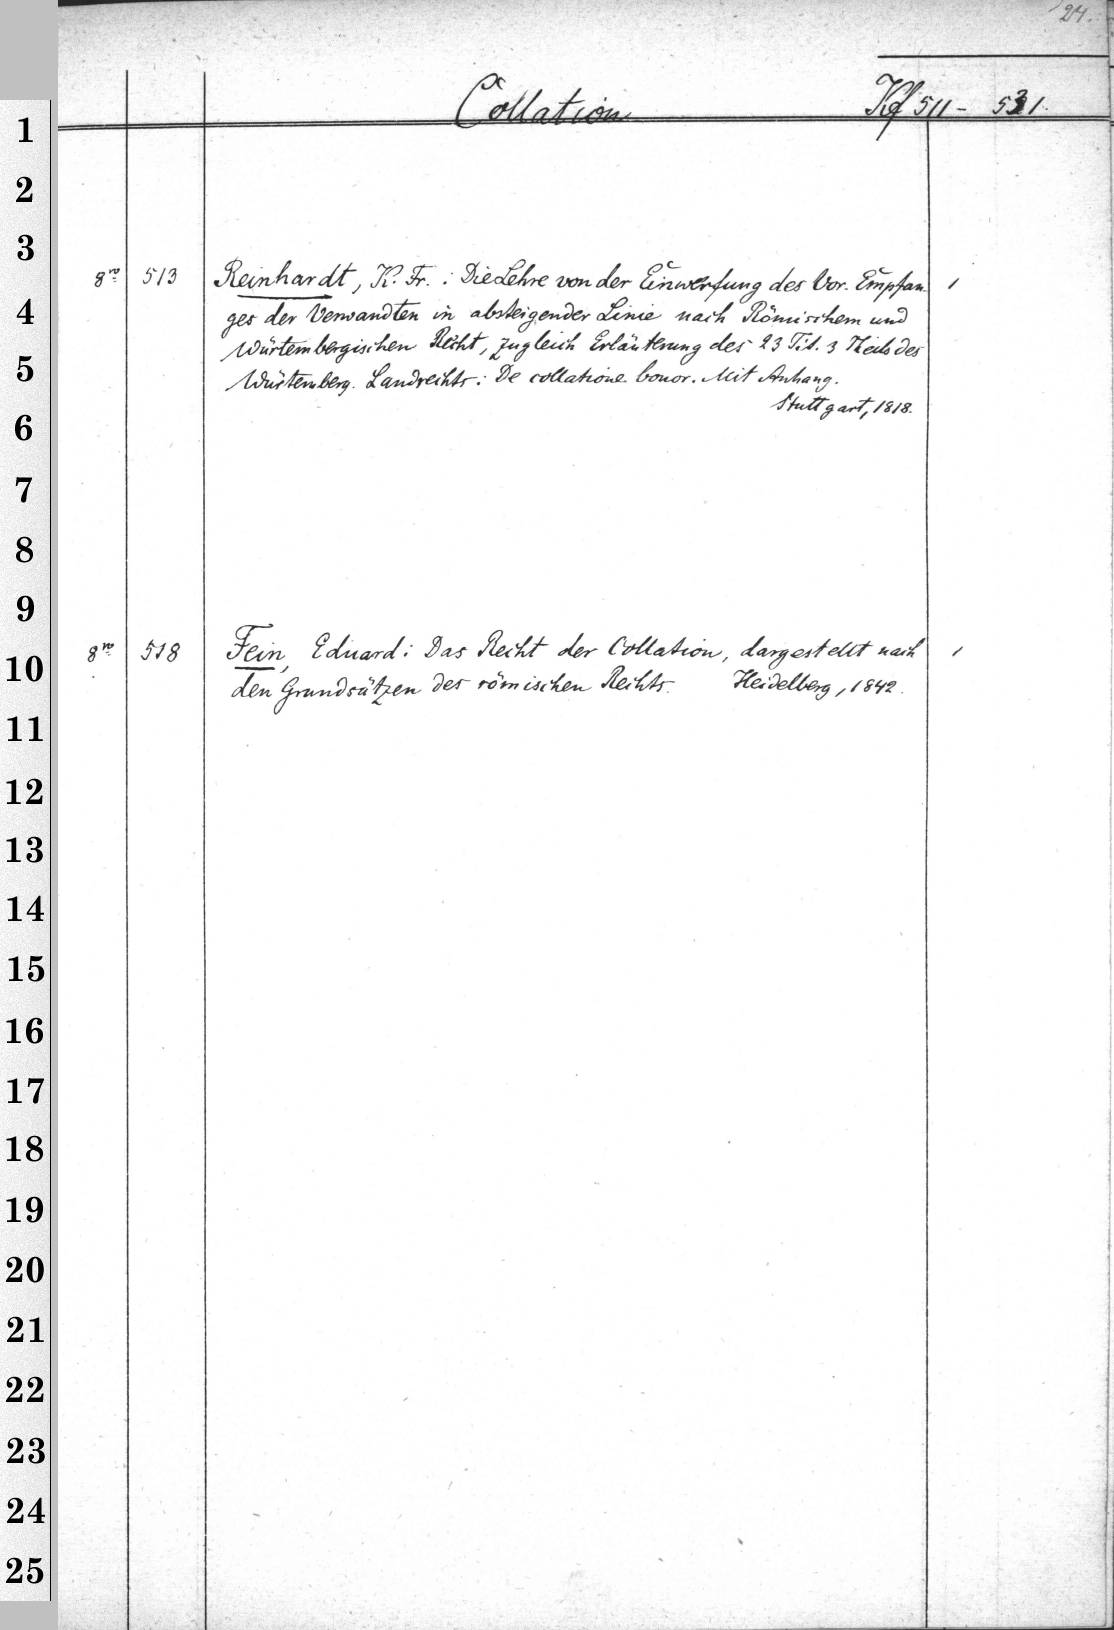 24.
Collation Kf 511 - 531.
8vo 513 Reinhardt, K. Fr.: Die Lehre von der Einwerfung des Vor-Empfan- 1
ges der Verwandten in absteigender Linie nach Römischem und
Würtembergischen Recht, zugleich Erläuterung des 23 Tit. 3 Theils des
Würtemberg. Landrechts: De collatione bonor. Mit Anhang.
Stuttgart, 1818.
8vo 518 Fein, Eduard: Das Recht der Collation, dargestellt nach 1
den Grundsätzen des römischen Rechts. Heidelberg, 1842.
1
2
3
4
5
6
7
8
9
10
11
12
13
14
15
16
17
18
19
20
21
22
23
24
25